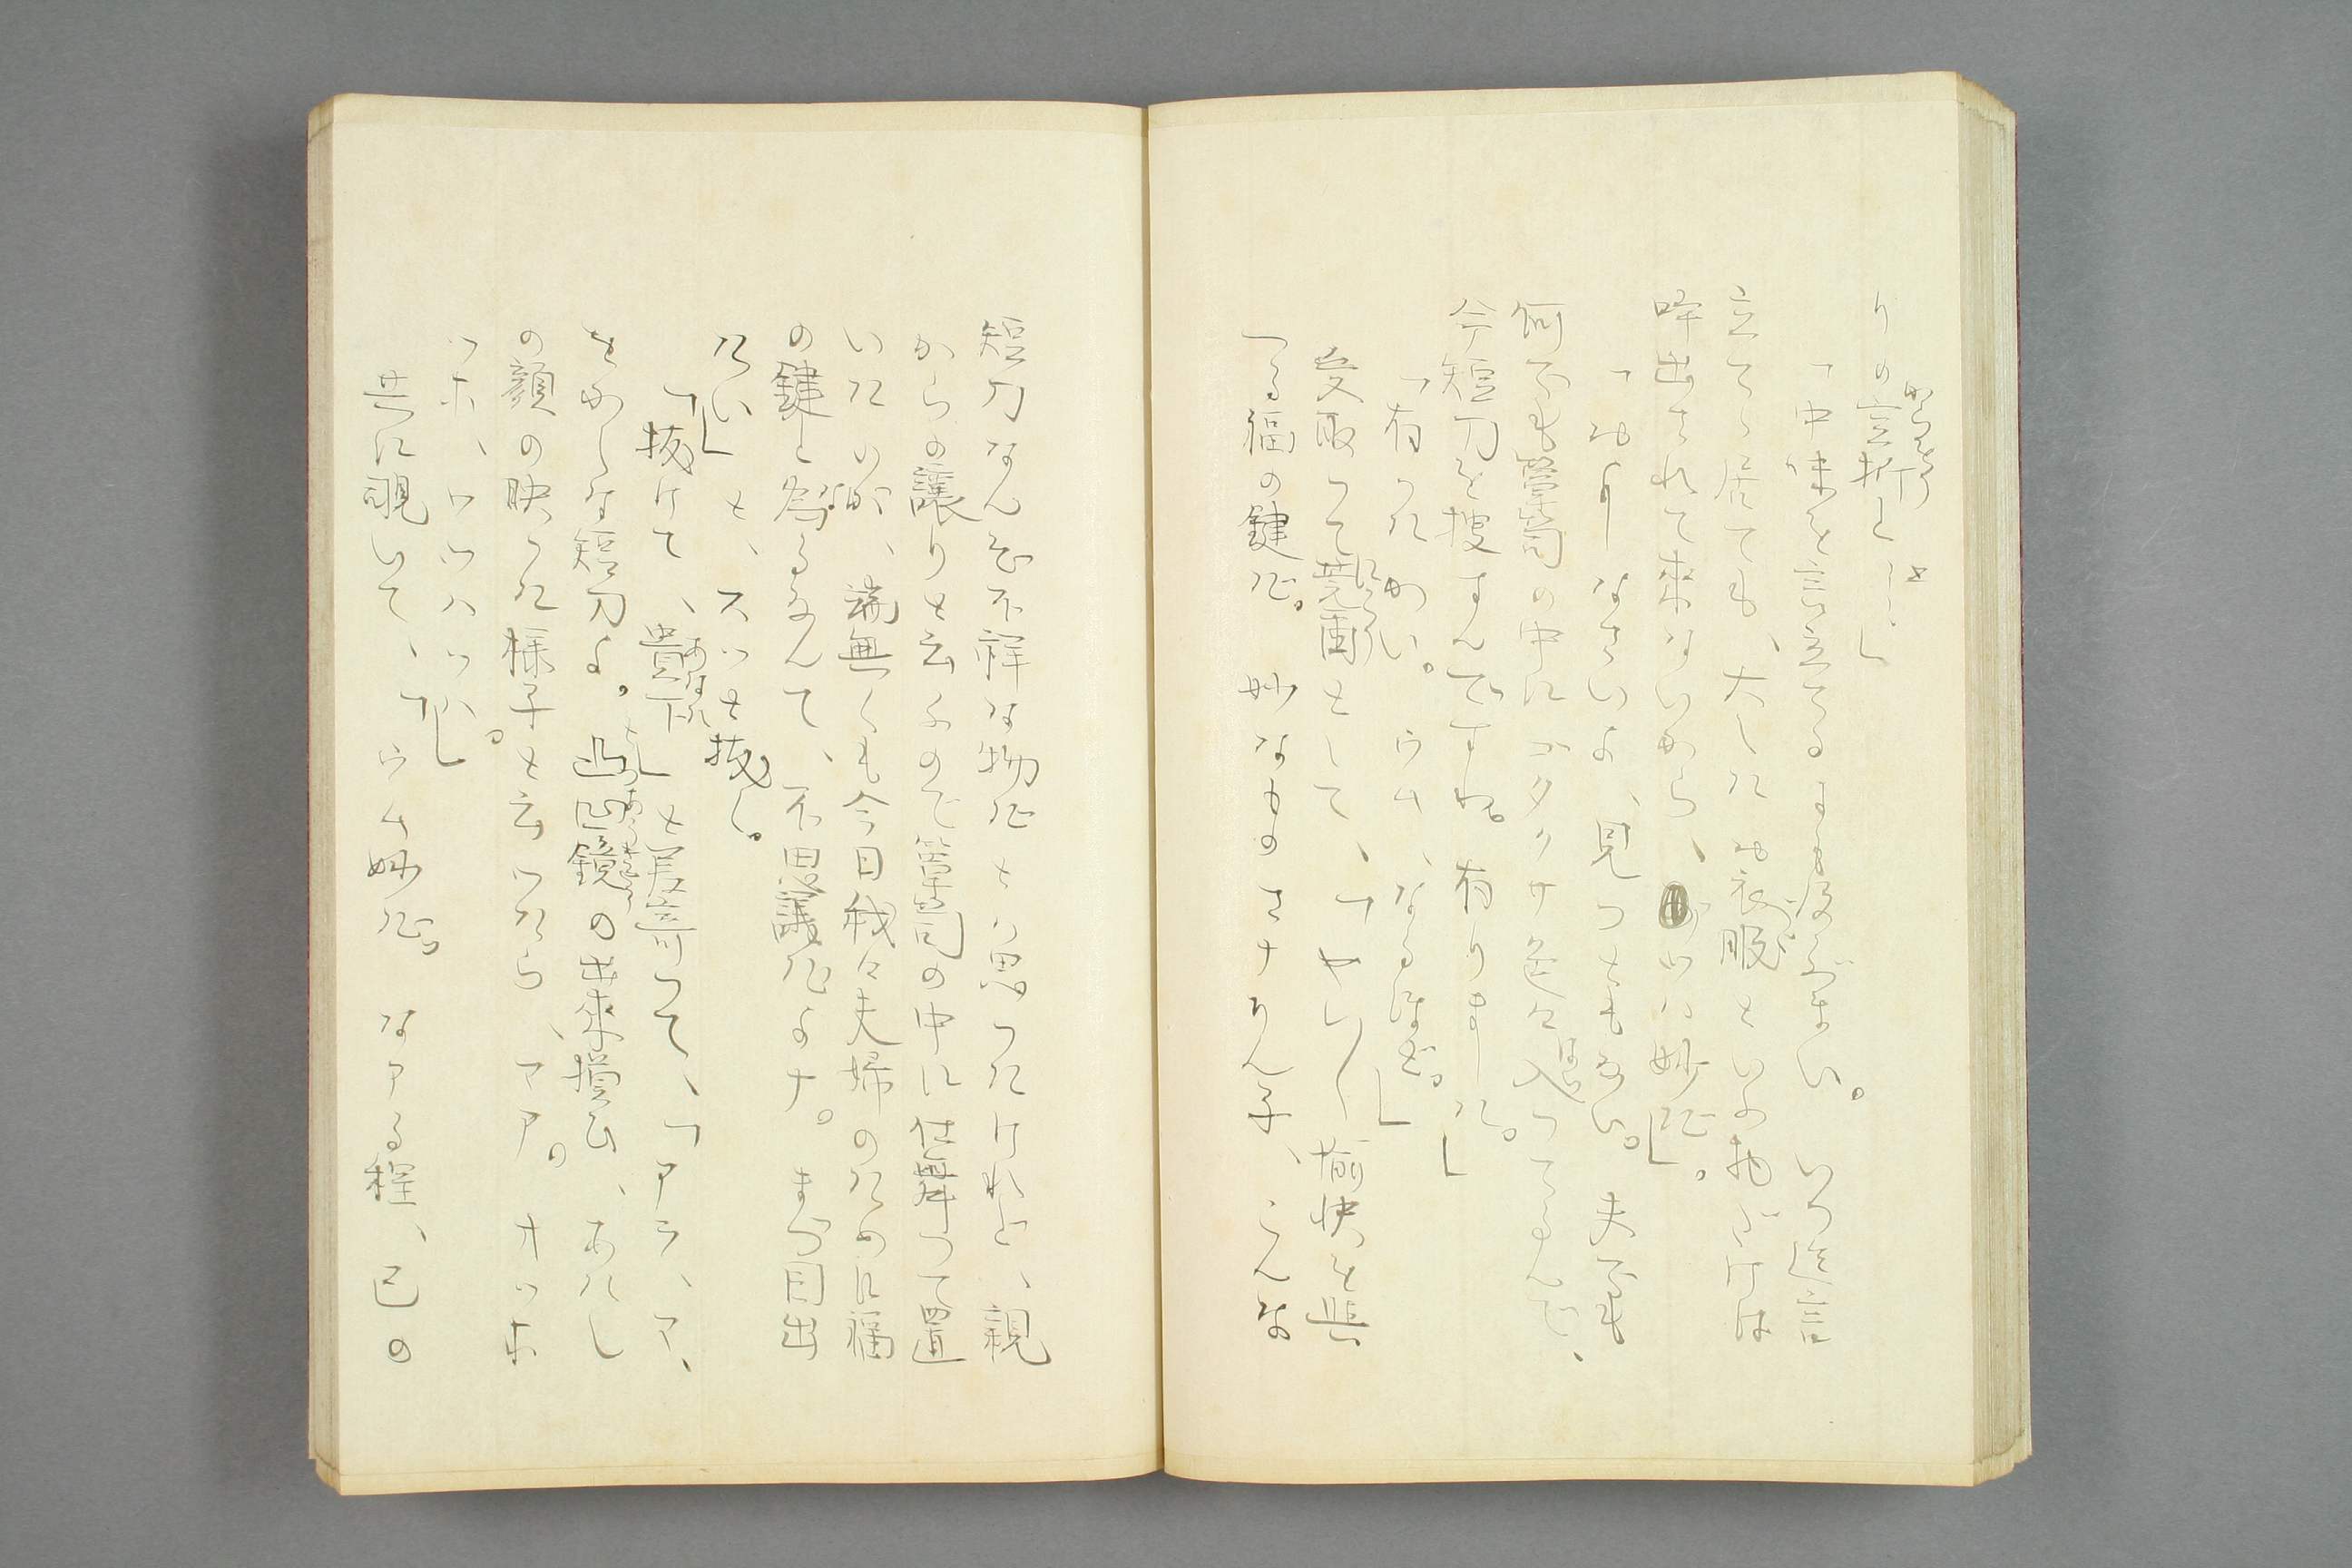 りの空(からっぽ)折と……」
「中味を言立てるまも及ぶまい。いつ迄言
立てゝ居ても、大したお衣服といふ物だけは
呼出されて来ないから、がツは妙だ」。
「およしなさいよ、見つともない。夫でも
何でも簞笥の中にゴタクサ色々入(はい)つてるんで、
今短刀を捜すんですね。有りました。」
「有つたかい。ウム、なるほど。」
受取つて莞爾(にっこり)として、「やレ〳〵愉快を嵌
つる福の鍵だ。妙なものさナりん子、こんな
短刀なんぞ不祥な物だとハ思つたけれど、親
からの譲りと云ふので簞笥の中に仕舞つて置
いたのが、端無くも今日我々夫婦のために福
の鍵と為るなんて、不思議だよナ。まづ目出
たい」と、スツと抜く。
「抜けて、貴下(あなた)」と差寄つて、「アラ、ア、
をかしな短刀よ。凸凹鏡の出来損ひ、あたし
の顔の映つた様子と云つたら、アア。オツホ
ツホ、ツツハツハ」。
共に覗いて、「ウム妙だ。なアる程、己の